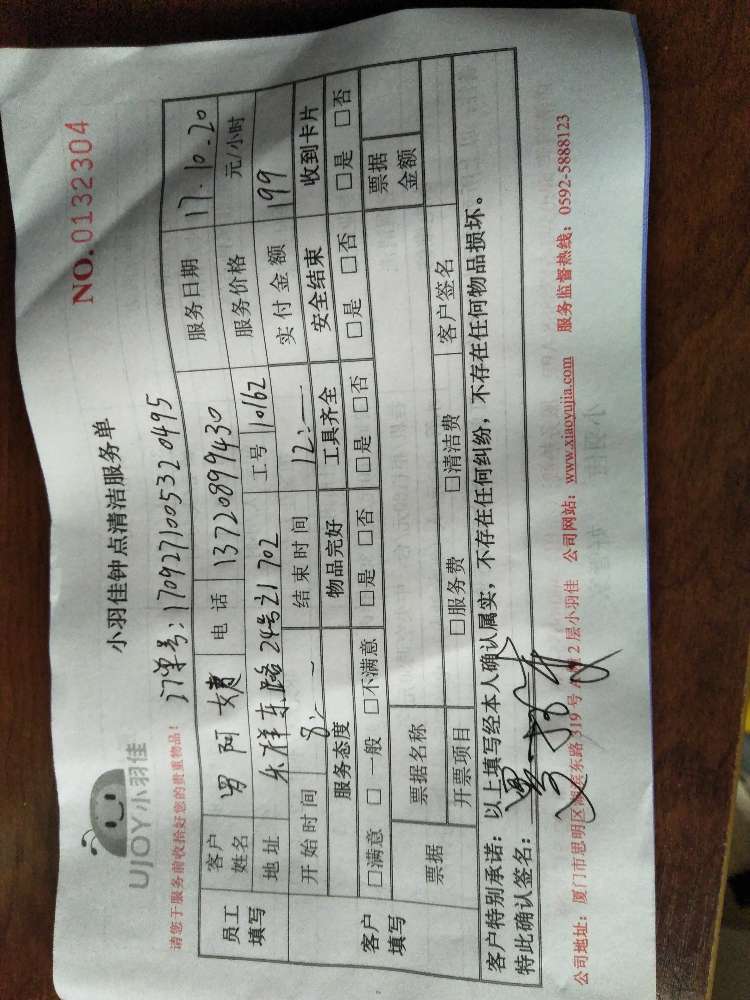 UJOY小羽佳
小羽佳钟点清洁服务单
NO.0132304
请您于服务前收拾好您的贵重物品！
订单号：170927100532 0495
员工填写
客户姓名 罗阿姨 电话 13720899430 服务日期 17.10.20
地址 东路24号21702 工号 10162 服务价格 元/小时
开始时间 8:- 结束时间 12:- 实付金额 199
客户填写
服务态度 物品完好 工具齐全 安全结束 收到卡片
□满意 □一般 □不满意 □是 □否 □是 □否 □是 □否 □是 □否
票据 票据名称 票据金额
开票项目 □服务费 □清洁费 客户签名
客户特别承诺：以上填写经本人确认属实，不存在任何纠纷，不存在任何物品损坏。
特此确认签名：
公司地址：厦门市思明区湖滨东路319号 2层小羽佳 公司网站：www.xiaoyujia.com 服务监督热线：0592-5888123